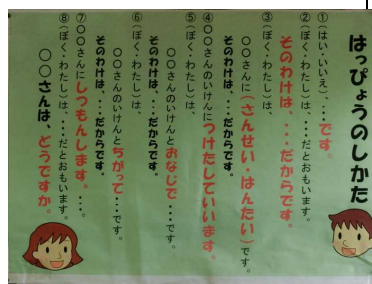 はっぴょうのしかた
①(はい・いいえ)、・・・です。
②(ぼく・わたし)は、・・・だとおもいます。
そのわけは、・・・だからです。
③(ぼく・わたし)は、
○○さんに(さんせい・はんたい)です。
そのわけは、・・・だからです。
④○○さんのいけんにつけたしていいます。
⑤(ぼく・わたし)は、
○○さんのいけんとおなじで・・・です。
そのわけは、・・・だからです。
⑥(ぼく・わたし)は、
○○さんのいけんとちがって・・・です。
そのわけは、・・・だからです。
⑦○○さんにしつもんします。・・・。
⑧(ぼく・わたし)は、・・・だとおもいます。
○○さんは、どうですか。